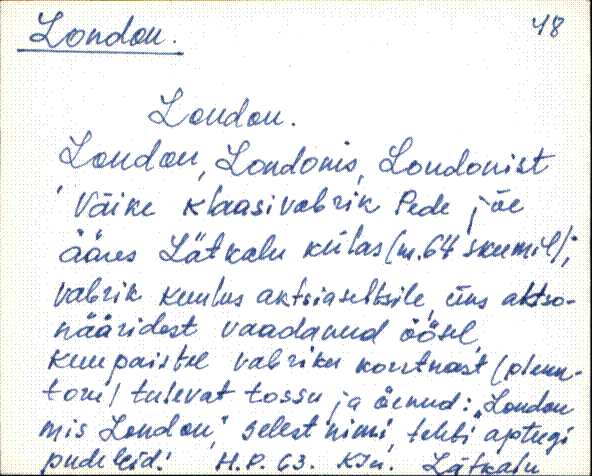 London. 48
London.
London, Londonis, Londonist
Väike klaasivabrik Pede jõe
ääres Lätkalu külas (m. 64 skeemil);
vabrik kuulus aktsiaseltsile, üks aktsio-
nääridest vaadanud öösel,
kuupaistel vabriku korstnast
tulevat tossu ja öelnud: "London
mis London," sellest nimi, tehti apteegi
pudeleid. H.P. 63. KJn. Lätkalu